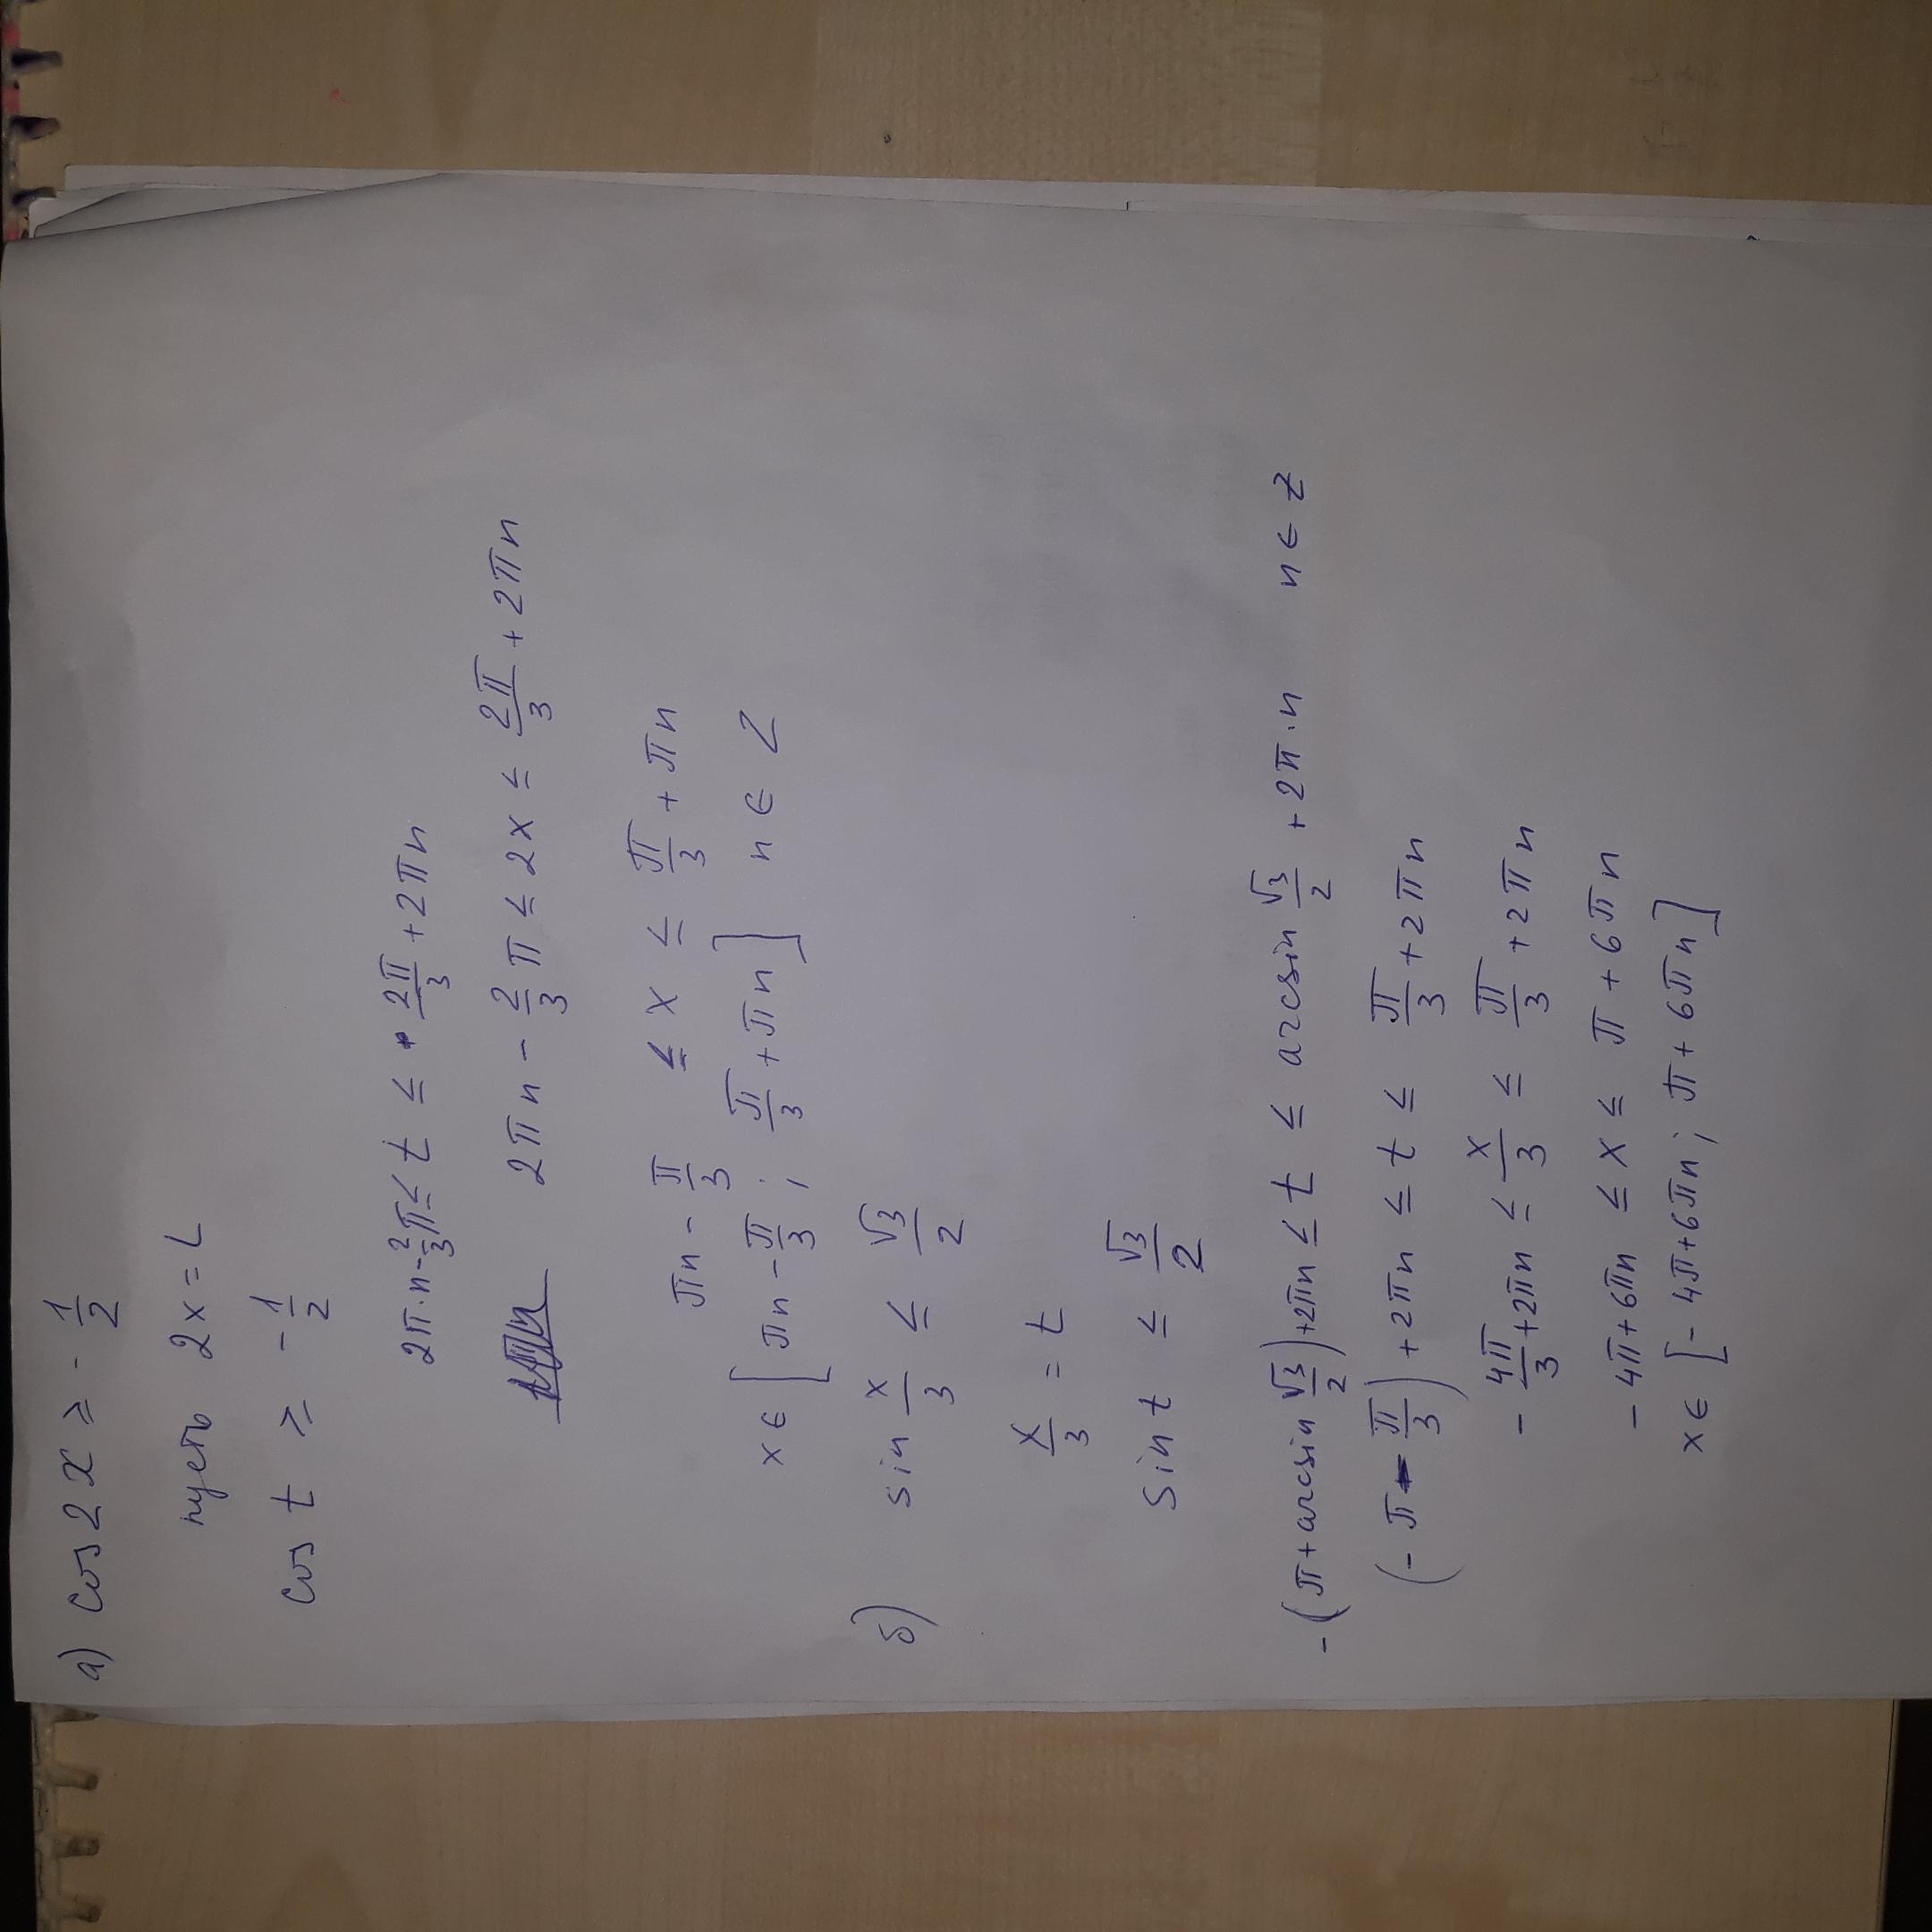 а) cos 2x ≥ - 1/2
пусть 2x = t
cos t ≥ - 1/2
2π·n - 2/3 π ≤ t ≤ 2π/3 + 2πn
2πn - 2/3 π ≤ 2x ≤ 2π/3 + 2πn
πn - π/3 ≤ x ≤ π/3 + πn
x ∈ [πn - π/3 ; π/3 + πn] n ∈ Z
б) sin x/3 ≤ √3/2
x/3 = t
Sin t ≤ √3/2
-(π + arcsin √3/2) + 2πn ≤ t ≤ arcsin √3/2 + 2π·n n ∈ Z
(-π - π/3) + 2πn ≤ t ≤ π/3 + 2πn
- 4π/3 + 2πn ≤ x/3 ≤ π/3 + 2πn
- 4π + 6πn ≤ x ≤ π + 6πn
x ∈ [- 4π + 6πn ; π + 6πn]